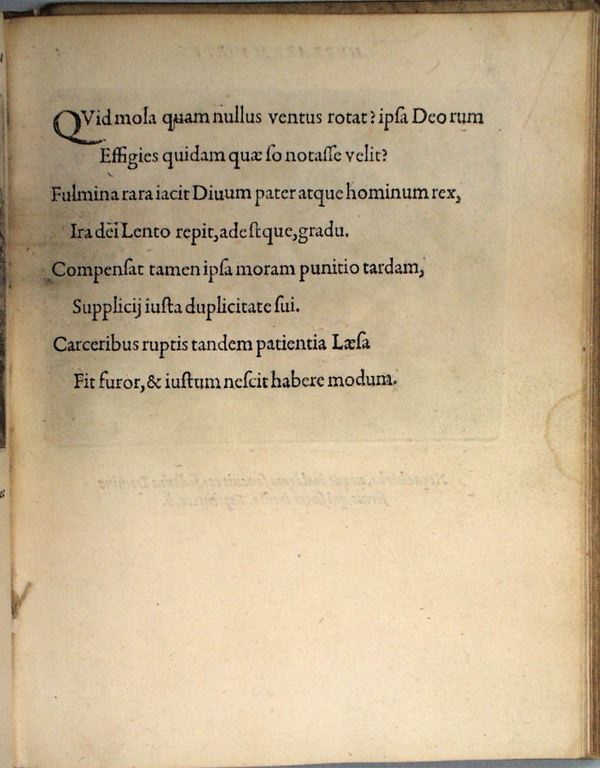 QVid mola quam nullus ventus rotat? ipſa Deorum
Effigies quidam quæ ſo notaſſe velit?
Fulmina rara iacit Diuum pater atque hominum rex,
Ira dei Lento repit, adeſtque, gradu.
Compenſat tamen ipſa moram punitio tardam,
Supplicij iuſta duplicitate ſui.
Carceribus ruptis tandem patientia Læſa
Fit furor, & iuſtum neſcit habere modum.